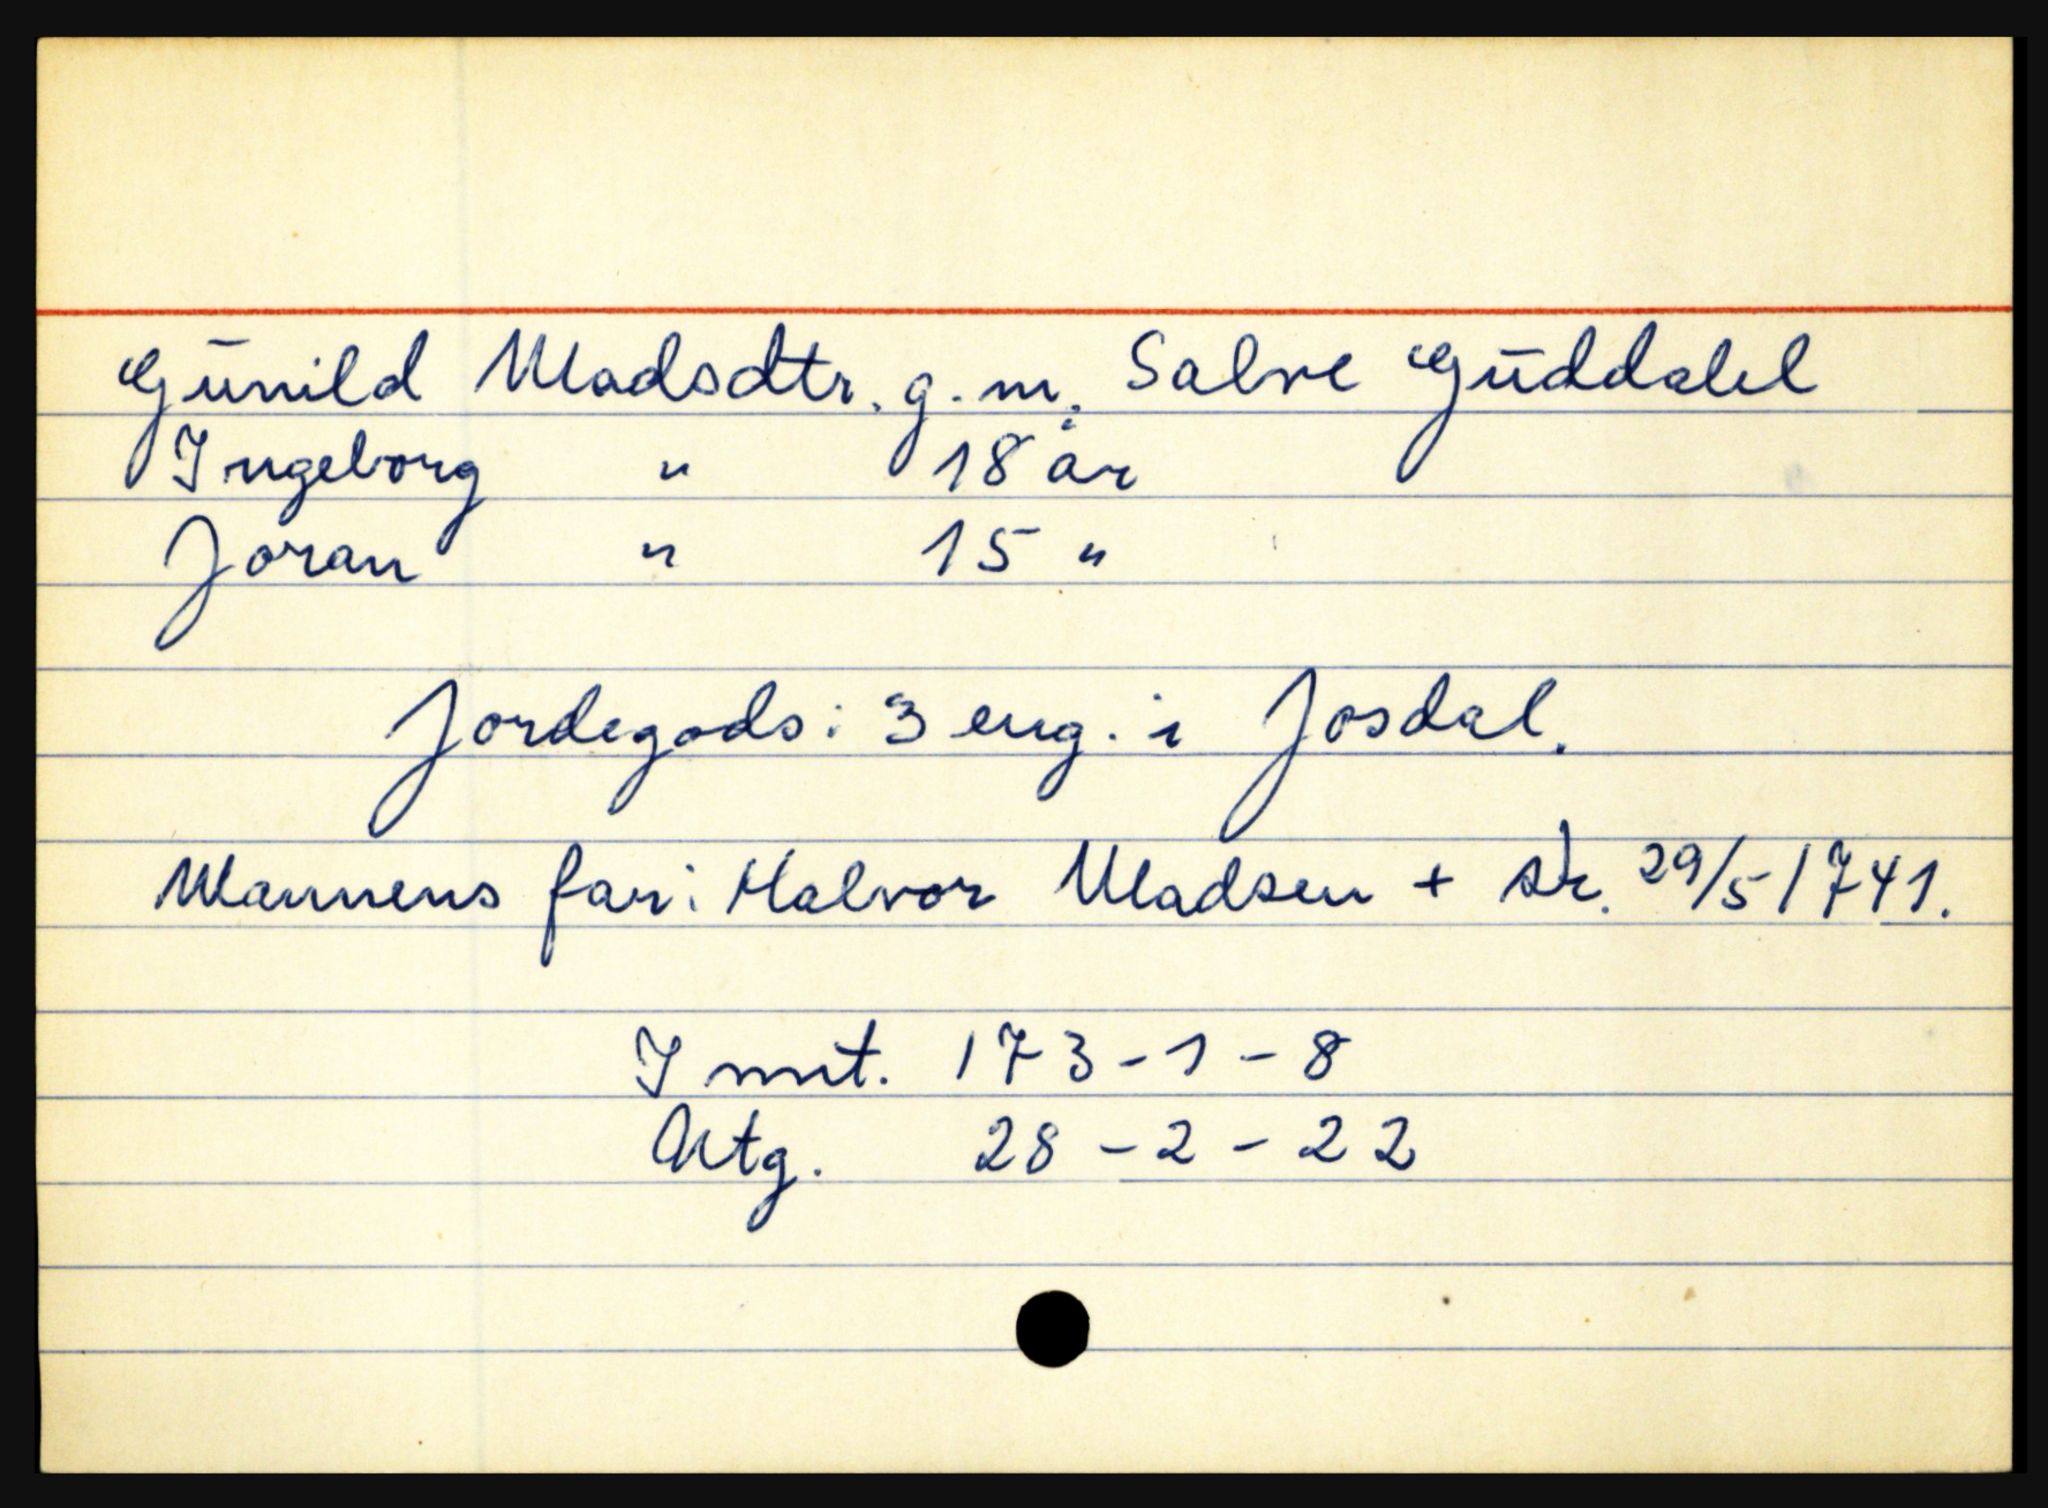 Gunild Madsdtr. g.m. Salve Guddalel
Ingeborg " 18 år
Joran " 15 "
Jordegods: 3 eng. i Josdal.
Mannens far: Halvor Madsen + skr. 29/5 1741.
I mnt. 173-1-8
Utg. 28-2-22